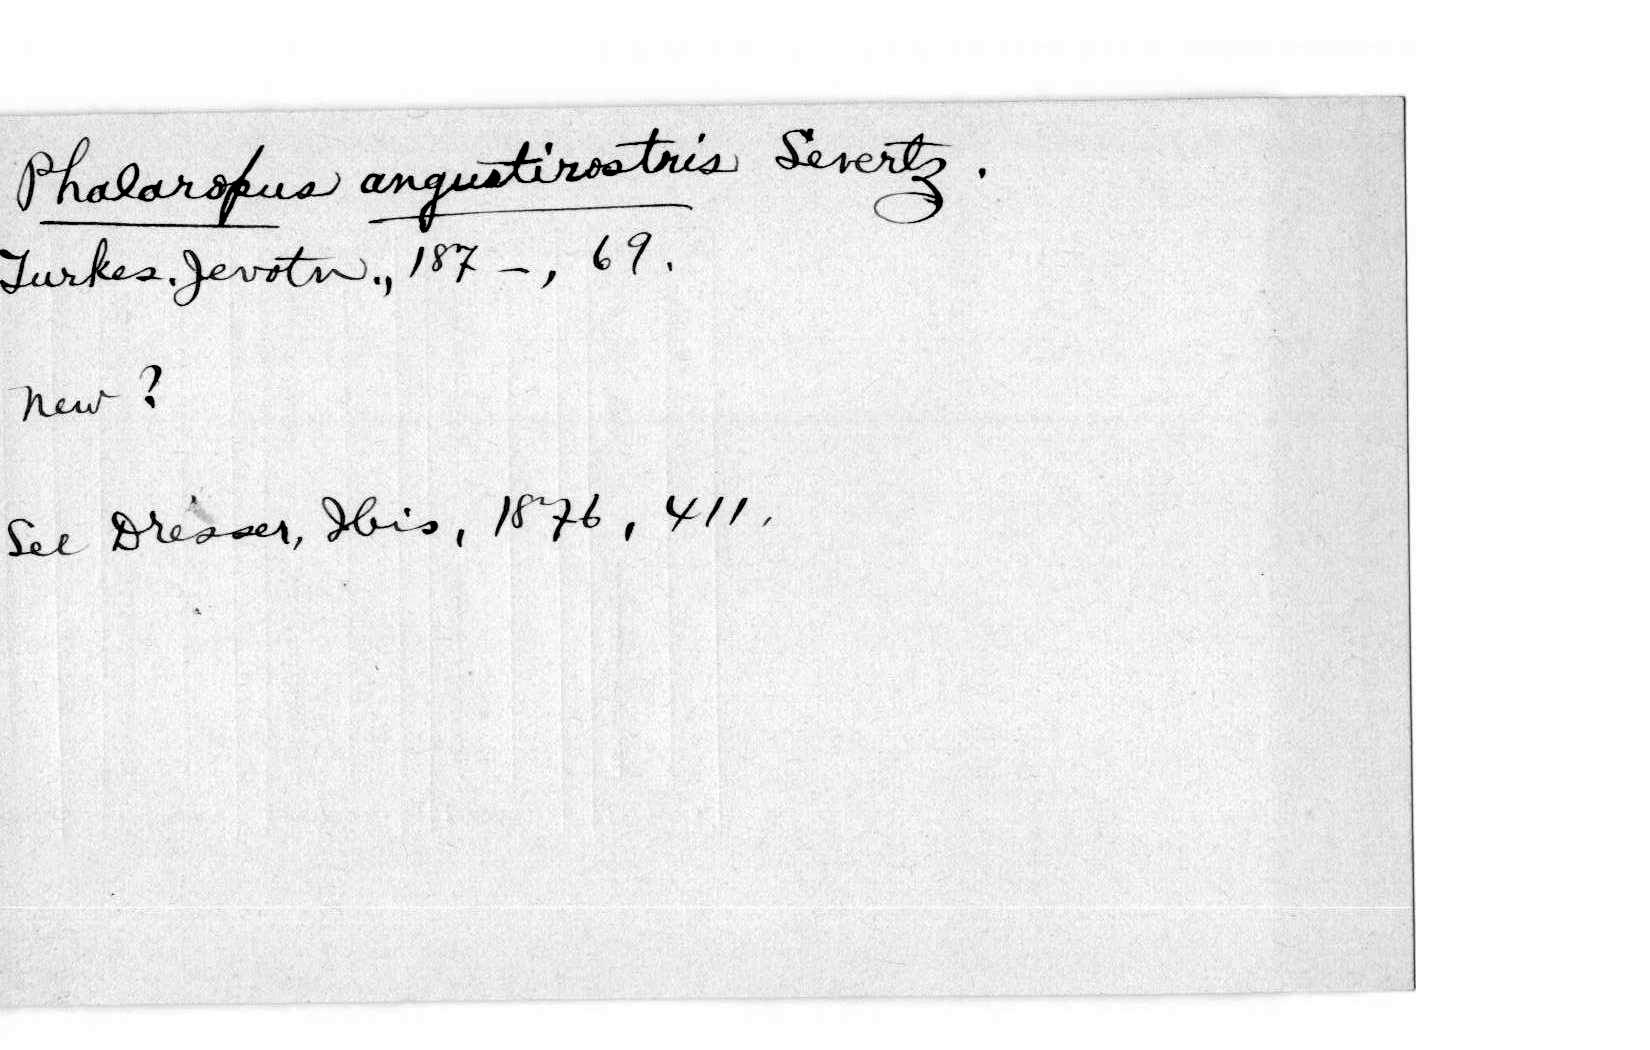 Phalaropus angustirostris Severtz.
Turkes. Jevotn., 187-, 69.
New?
See Dresser, Ibis, 1876, 411.